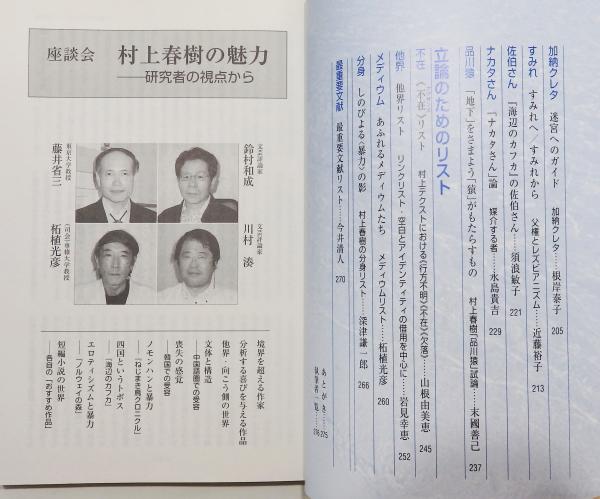 加納クレタ　迷宮へのガイド　加納クレタ……根岸泰子 205
すみれ　すみれへ／すみれから　父権とレズビアニズム……近藤裕子 213
佐伯さん　『海辺のカフカ』の佐伯さん……須浪敏子 221
ナカタさん　『ナカタさん』論　媒介する者……水島貴吉 229
品川猿　「地下」をさまよう「猿」がもたらすもの　村上春樹「品川猿」試論……末國善己 237
立論のためのリスト
不在　〈不在〉リスト　村上テクストにおける〈行方不明〉〈不在〉〈欠落〉……山根由美恵 245
他界　他界リスト　リンクリスト・空白とアイデンティティの借用を中心に……岩見幸恵 252
メディウム　あふれるメディウムたち　メディウムリスト……柘植光彦 260
分身　しのびよる〈暴力〉の影　村上春樹の分身リスト……深津謙一郎 266
最重要文献　最重要文献リスト……今井清人 270
あとがき……275
執筆者一覧……276
座談会　村上春樹の魅力
――研究者の視点から
文芸評論家
鈴村和成
東京大学教授
藤井省三
文芸評論家
川村　湊
（司会）専修大学教授
柘植光彦
境界を超える作家
分析する喜びを与える作品
他界・向こう側の世界
文体と構造
――中国語圏での受容
喪失の感覚
――韓国での受容
ノモンハンと暴力
――『ねじまき鳥クロニクル』
四国というトポス
――『海辺のカフカ』
エロティシズムと暴力
――『ノルウェイの森』
短編小説の世界
――各自の「おすすめ作品」